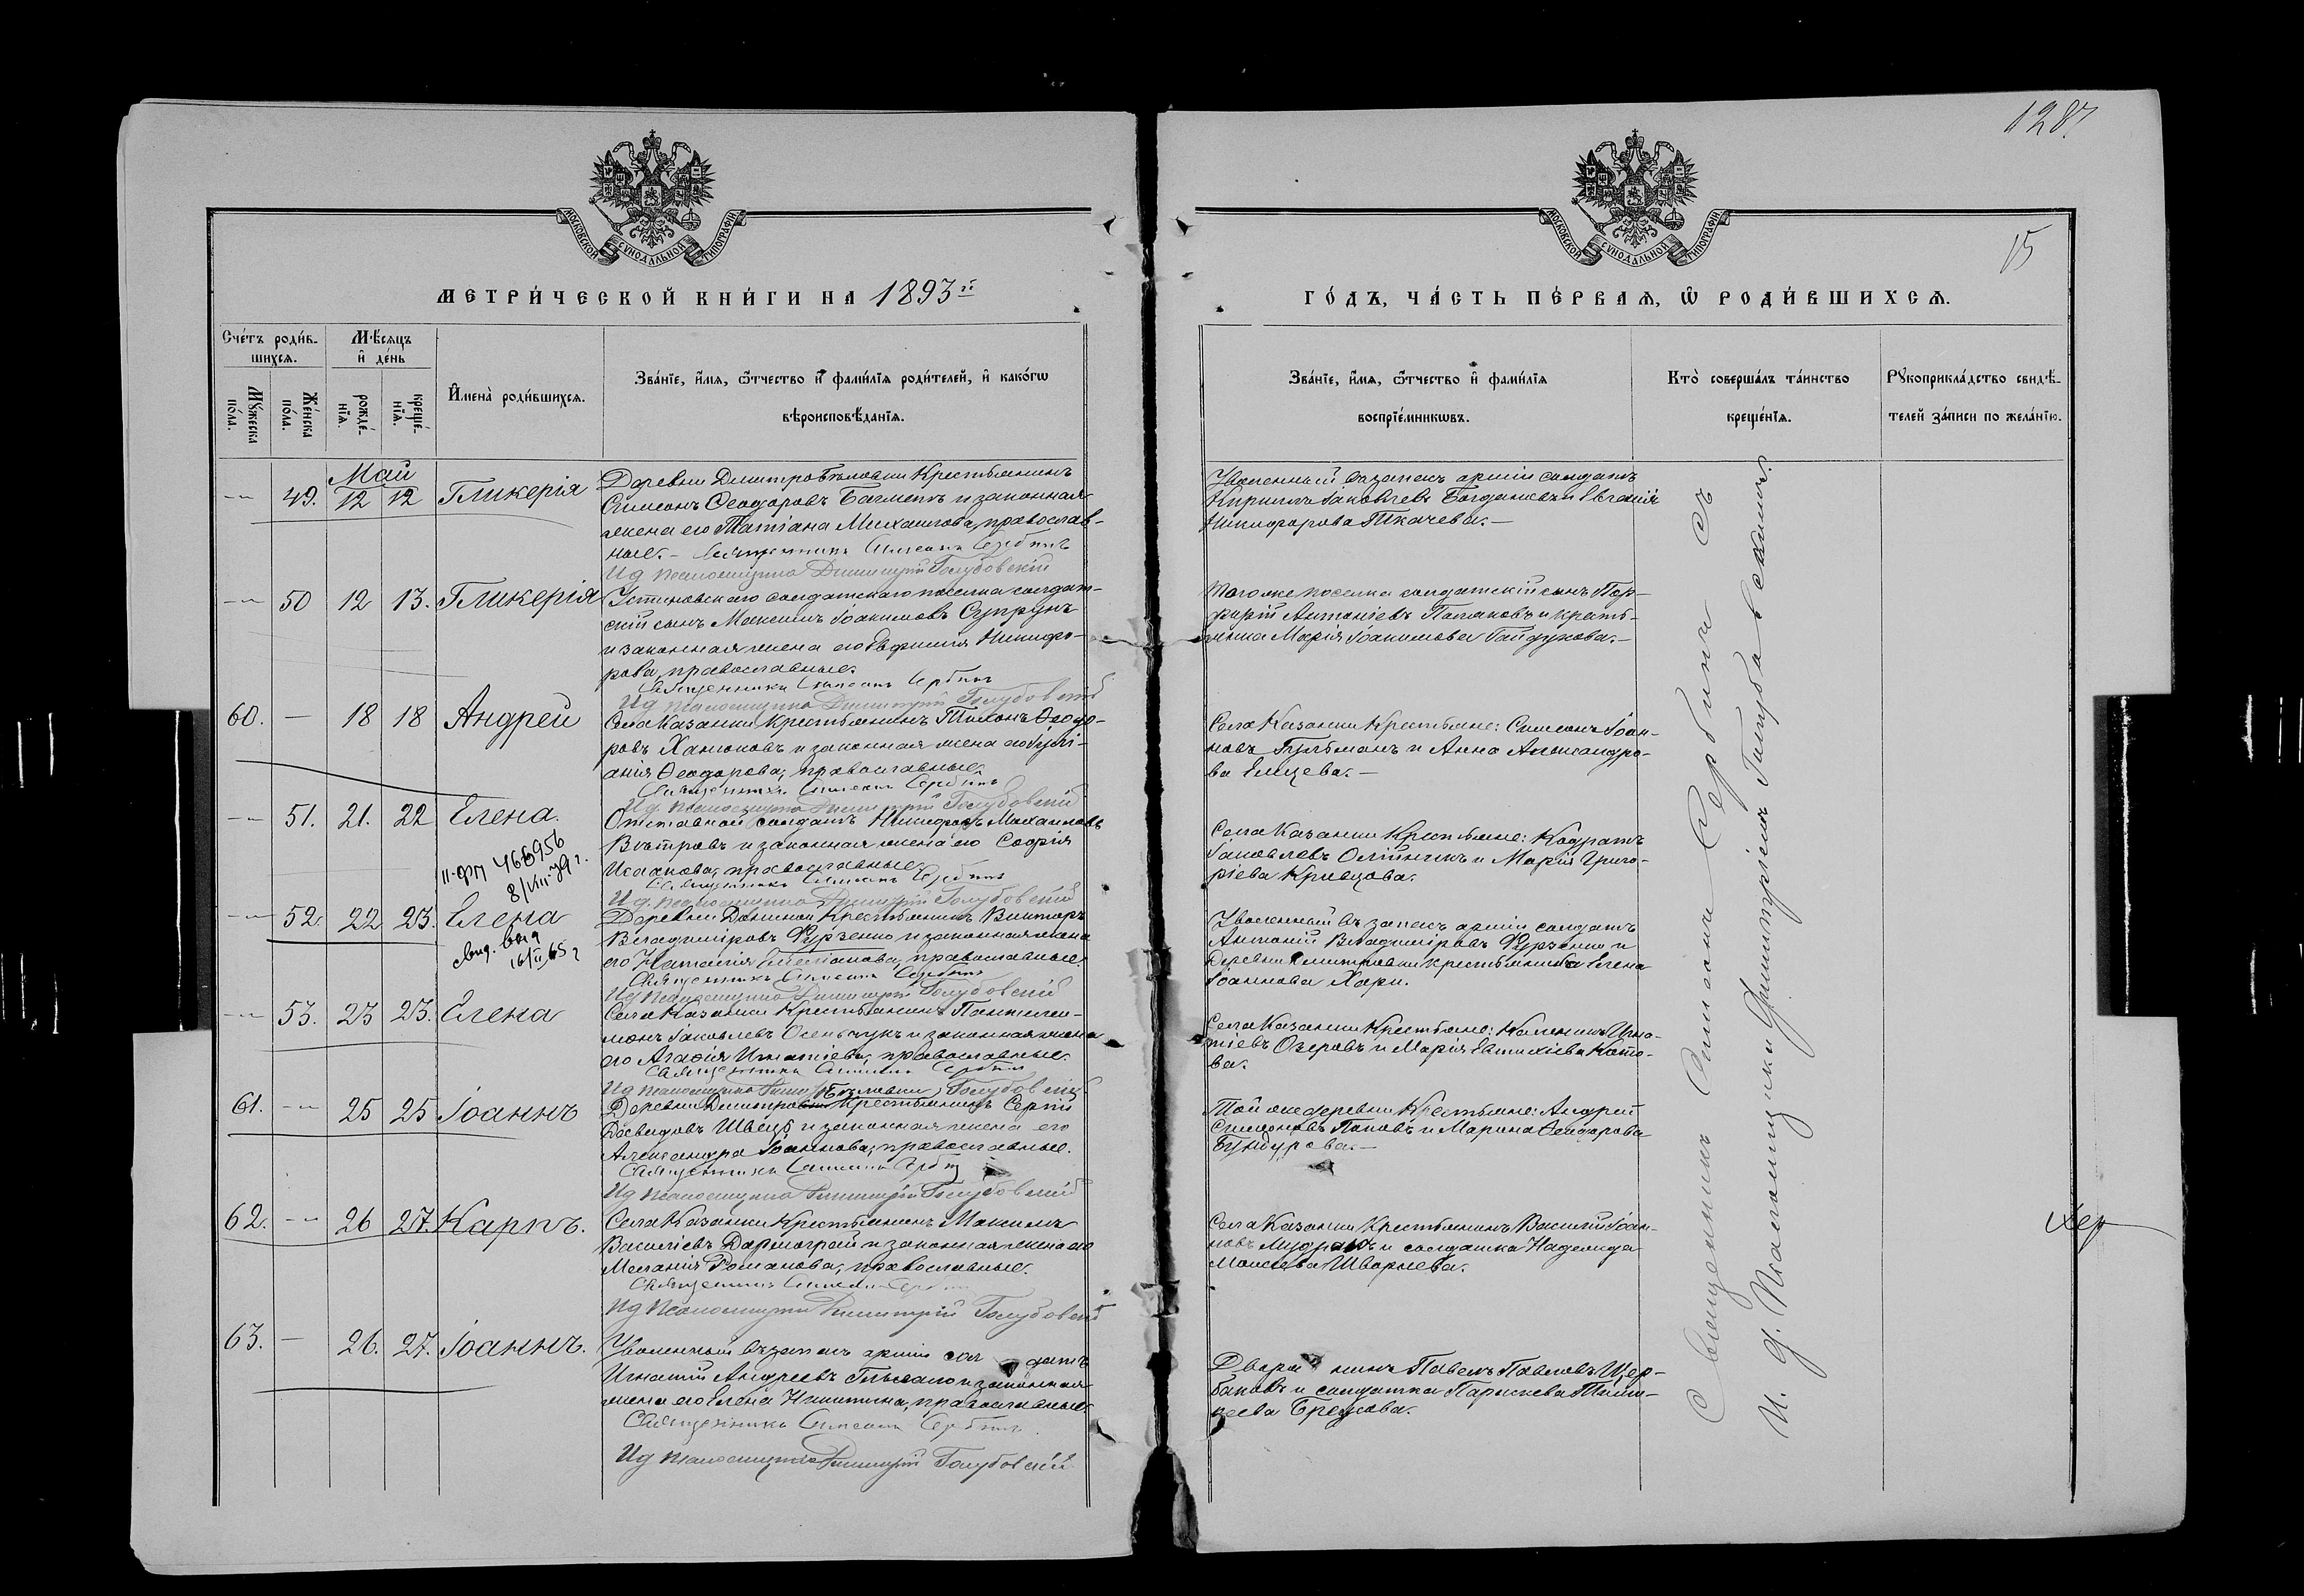 128.
МОСКОВСКОЙ СѴНОДАЛЬНОЙ ТИПОГРАФІИ
МОСКОВСКОЙ СѴНОДАЛЬНОЙ ТИПОГРАФІИ
15
МЕТРИ́ЧЕСКОЙ КНИ́ГИ НА 1893й
ГО́ДЪ, ЧА́СТЬ ПЕ́РВАѦ, Ѽ РОДИ́ВШИХСѦ.
Сче́тъ роди́в-
шихсѧ.
Мѣ́сѧцъ
и҆ де́нь
Мꙋ́жеска по́ла.
Же́нска по́ла.
рожде́-
нїѧ.
креще́-
нїѧ.
И҆мена̀ роди́вшихсѧ.
Зва́нїе, и҆́мѧ, ѻ҆́тчество и҆ фами́лїѧ роди́телей, и҆ како́гѡ
вѣроисповѣ́данїѧ.
Зва́нїе, и҆́мѧ, ѻ҆́тчество и҆ фами́лїѧ
воспрїе́мникѡвъ.
Кто̀ соверша́лъ та́инство
креще́нїѧ.
Рꙋкоприкла́дство свидѣ́-
телей за́писи по жела́нїю.
Май
— 49. 12 12 Гликерія
Деревни Дмитро Бѣловки Крестьянинъ
Симеонъ Ѳеодоровъ и законная
жена его Татіана Михаилова, православ-
ные.— Священникъ Симеонъ Сербинъ
Ид псаломщика Димитрій Голубовскій
Уволенный въ запасъ арміи солдатъ
Кириллъ Іаковлевъ Богдановъ и Евгенія
Никифорова Ткачева.—
— 50 12 13. Гликерія
Устиновскаго солдатскаго поселка солдат-
скій сынъ Максимъ Іоакимовъ Супрунъ
и законная жена его Евфимія Никифо-
рова, православные.
Священникъ Симеонъ Сербинъ
Ид псаломщика Димитрій Голубовскій
Того же поселка солдатскій сынъ Пор-
фирій Антоніевъ и кресть-
янка Марія Іоакимова Гайдукова.—
60. — 18 18 Андрей
Села Казанки Крестьянинъ Тихонъ Ѳеодо-
ровъ Ханюковъ и законная жена его Іулі-
анія Ѳеодорова, православные.
Священникъ Симеонъ Сербинъ
Ид. псаломщика Димитрій Голубовскій
Села Казанки Крестьяне: Симеонъ Іоан-
новъ Гульманъ и Анна Александро-
ва Елцева.—
— 51. 21. 22 Елена.
Отставной солдатъ Никифоръ Михаиловъ
Вѣтровъ и законная жена его Софія
Исаакова, православные.
Священникъ Симеонъ Сербинъ
Ид. псаломщика Димитрій Голубовскій
Села Казанки Крестьяне: Кодратъ
Іаковлевъ Олійникъ и Марія Григо-
ріева Кривцова.
II-ФП 466956
8/VIII-79 г.
— 52. 22 23. Елена
Деревни Крестьянинъ Викторъ
Владиміровъ Фурзенко и законная жена
его Наталія православные
Священникъ Симеонъ Сербинъ
Ид псаломщика Димитрій Голубовскій
Уволенный въ запасъ арміи солдатъ
Антоній Владиміровъ Фурзенко и
Деревни Дмитровки крестьянка Елена
Іоаннова Хари.
свид. выд
16/II 65 г
— 53. 23 23. Елена
Села Казанки Крестьянинъ Пантелеи-
монъ Іаковлевъ и законная жена
его Агафія Игнатіева, православные.
Священникъ Симеонъ Сербинъ
Ид псаломщика Димитрій Голубовскій
Села Казанки Крестьяне: Игна-
тіевъ Озеровъ и Марія Евтихіева Кото-
ва.
61. — 25 25 Іоаннъ
Бѣловки
Деревни Дмитровки Крестьянинъ Сергій
Давидовъ Швецъ и законная жена его
Александра Іоаннова, православные.
Священникъ Симеонъ Сербинъ
Ид псаломщика Димитрій Голубовскій
Той же деревни Крестьяне: Андрей
Симеоновъ Поповъ и Марина Ѳеодорова
Бундурова.—
62. — 26 27. Карпъ.
Села Казанки Крестьянинъ Максимъ
Василіевъ Дармограй и законная жена его
Меланія Романова, православные.
Священникъ Симеонъ Сербинъ
Ид псаломщика Димитрій Голубовскій
Села Казанки Крестьянинъ Василій Іоан-
новъ и солдатка Надежда
Моисеева Шварнева.
63. — 26. 27. Іоаннъ.
Уволенный въ запасъ арміи солдатъ
Игнатій Андреевъ и законная
жена его Елена Никитина, православные
Священникъ Симеонъ Сербинъ.
Ид псаломщика Димитрій Голубовскій
Дворянинъ Павелъ Павловъ Щер-
баковъ и солдатка Параскева Тимо-
ѳеева
Священникъ Симеонъ Сербинъ съ
и. д. Псаломщика Димитріемъ Голубовскимъ.